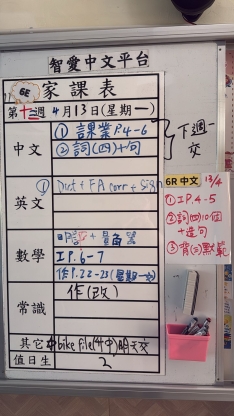 智愛中文平台
6E 家課表
第十三週 4月13日(星期一)
中文
① 課業P.4-6
② 詞(四)+句
下週一交
英文
① Dict + FA corr + Sign
數學
IP.6-7
作P.22-23(星期一交)
常識
作(改)
其它
bike file(4中)明天交
值日生
2
6R 中文 13/4
① IP.4-5
② 詞(四)10個
+造句
③ 背(三)默範